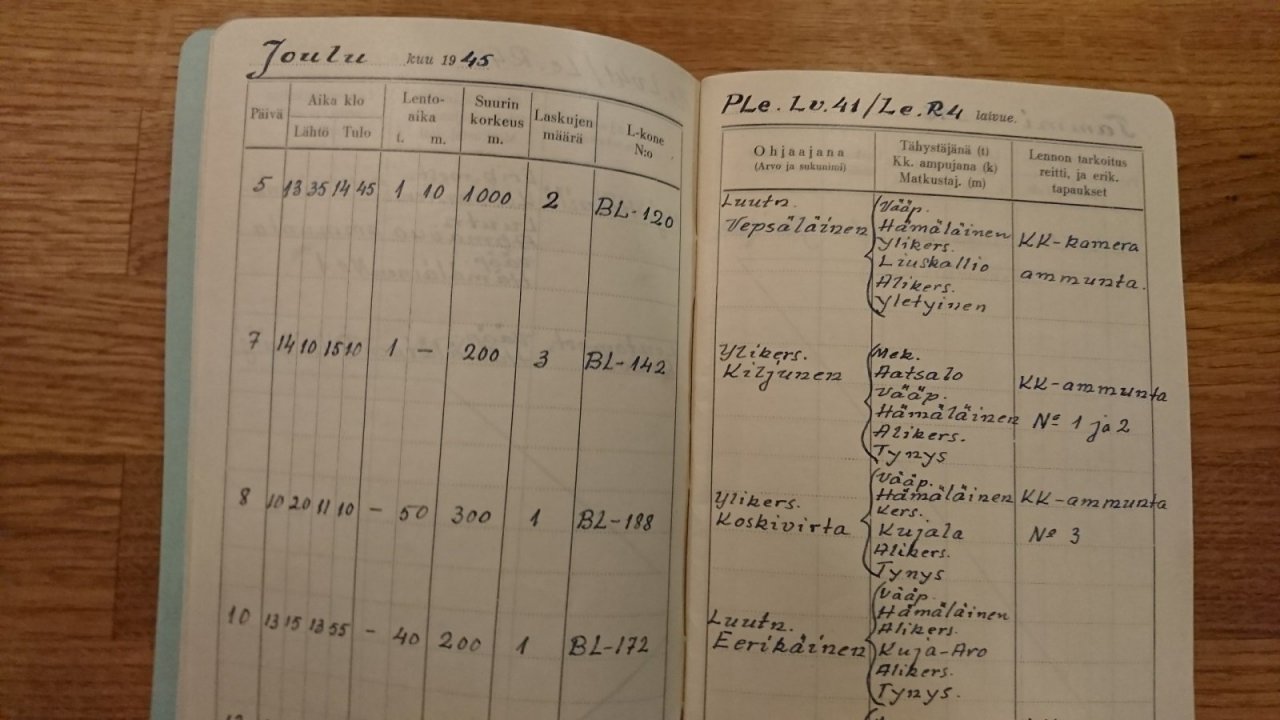 Joulu kuu 1945
Päivä
Aika klo
Lähtö Tulo
Lento-
aika
t. m.
Suurin
korkeus
m.
Laskujen
määrä
L-kone
N:o
5 13 35 14 45 1 10 1000 2 BL-120
7 14 10 15 10 1 — 200 3 BL-142
8 10 20 11 10 — 50 300 1 BL-188
10 13 15 13 55 — 40 200 1 BL-172
PLe. Lv. 41/Le. R4 laivue.
Ohjaajana
(Arvo ja sukunimi)
Tähystäjänä (t)
Kk. ampujana (k)
Matkustaj. (m)
Lennon tarkoitus
reitti, ja erik.
tapaukset
Luutn.
Vepsäläinen
Vääp.
Hämäläinen
Ylikers.
Liuskallio
Alikers.
Yletyinen
KK-kamera
ammunta.
Ylikers.
Kiljunen
Mek.
Aatsalo
Vääp.
Hämäläinen
Alikers.
Tynys
KK-ammunta
Nº 1 ja 2
Ylikers.
Koskivirta
Vääp.
Hämäläinen
Kers.
Kujala
Alikers.
Tynys
KK-ammunta
Nº 3
Luutn.
Eerikäinen
Vääp.
Hämäläinen
Alikers.
Kuja-Aro
Alikers.
Tynys.